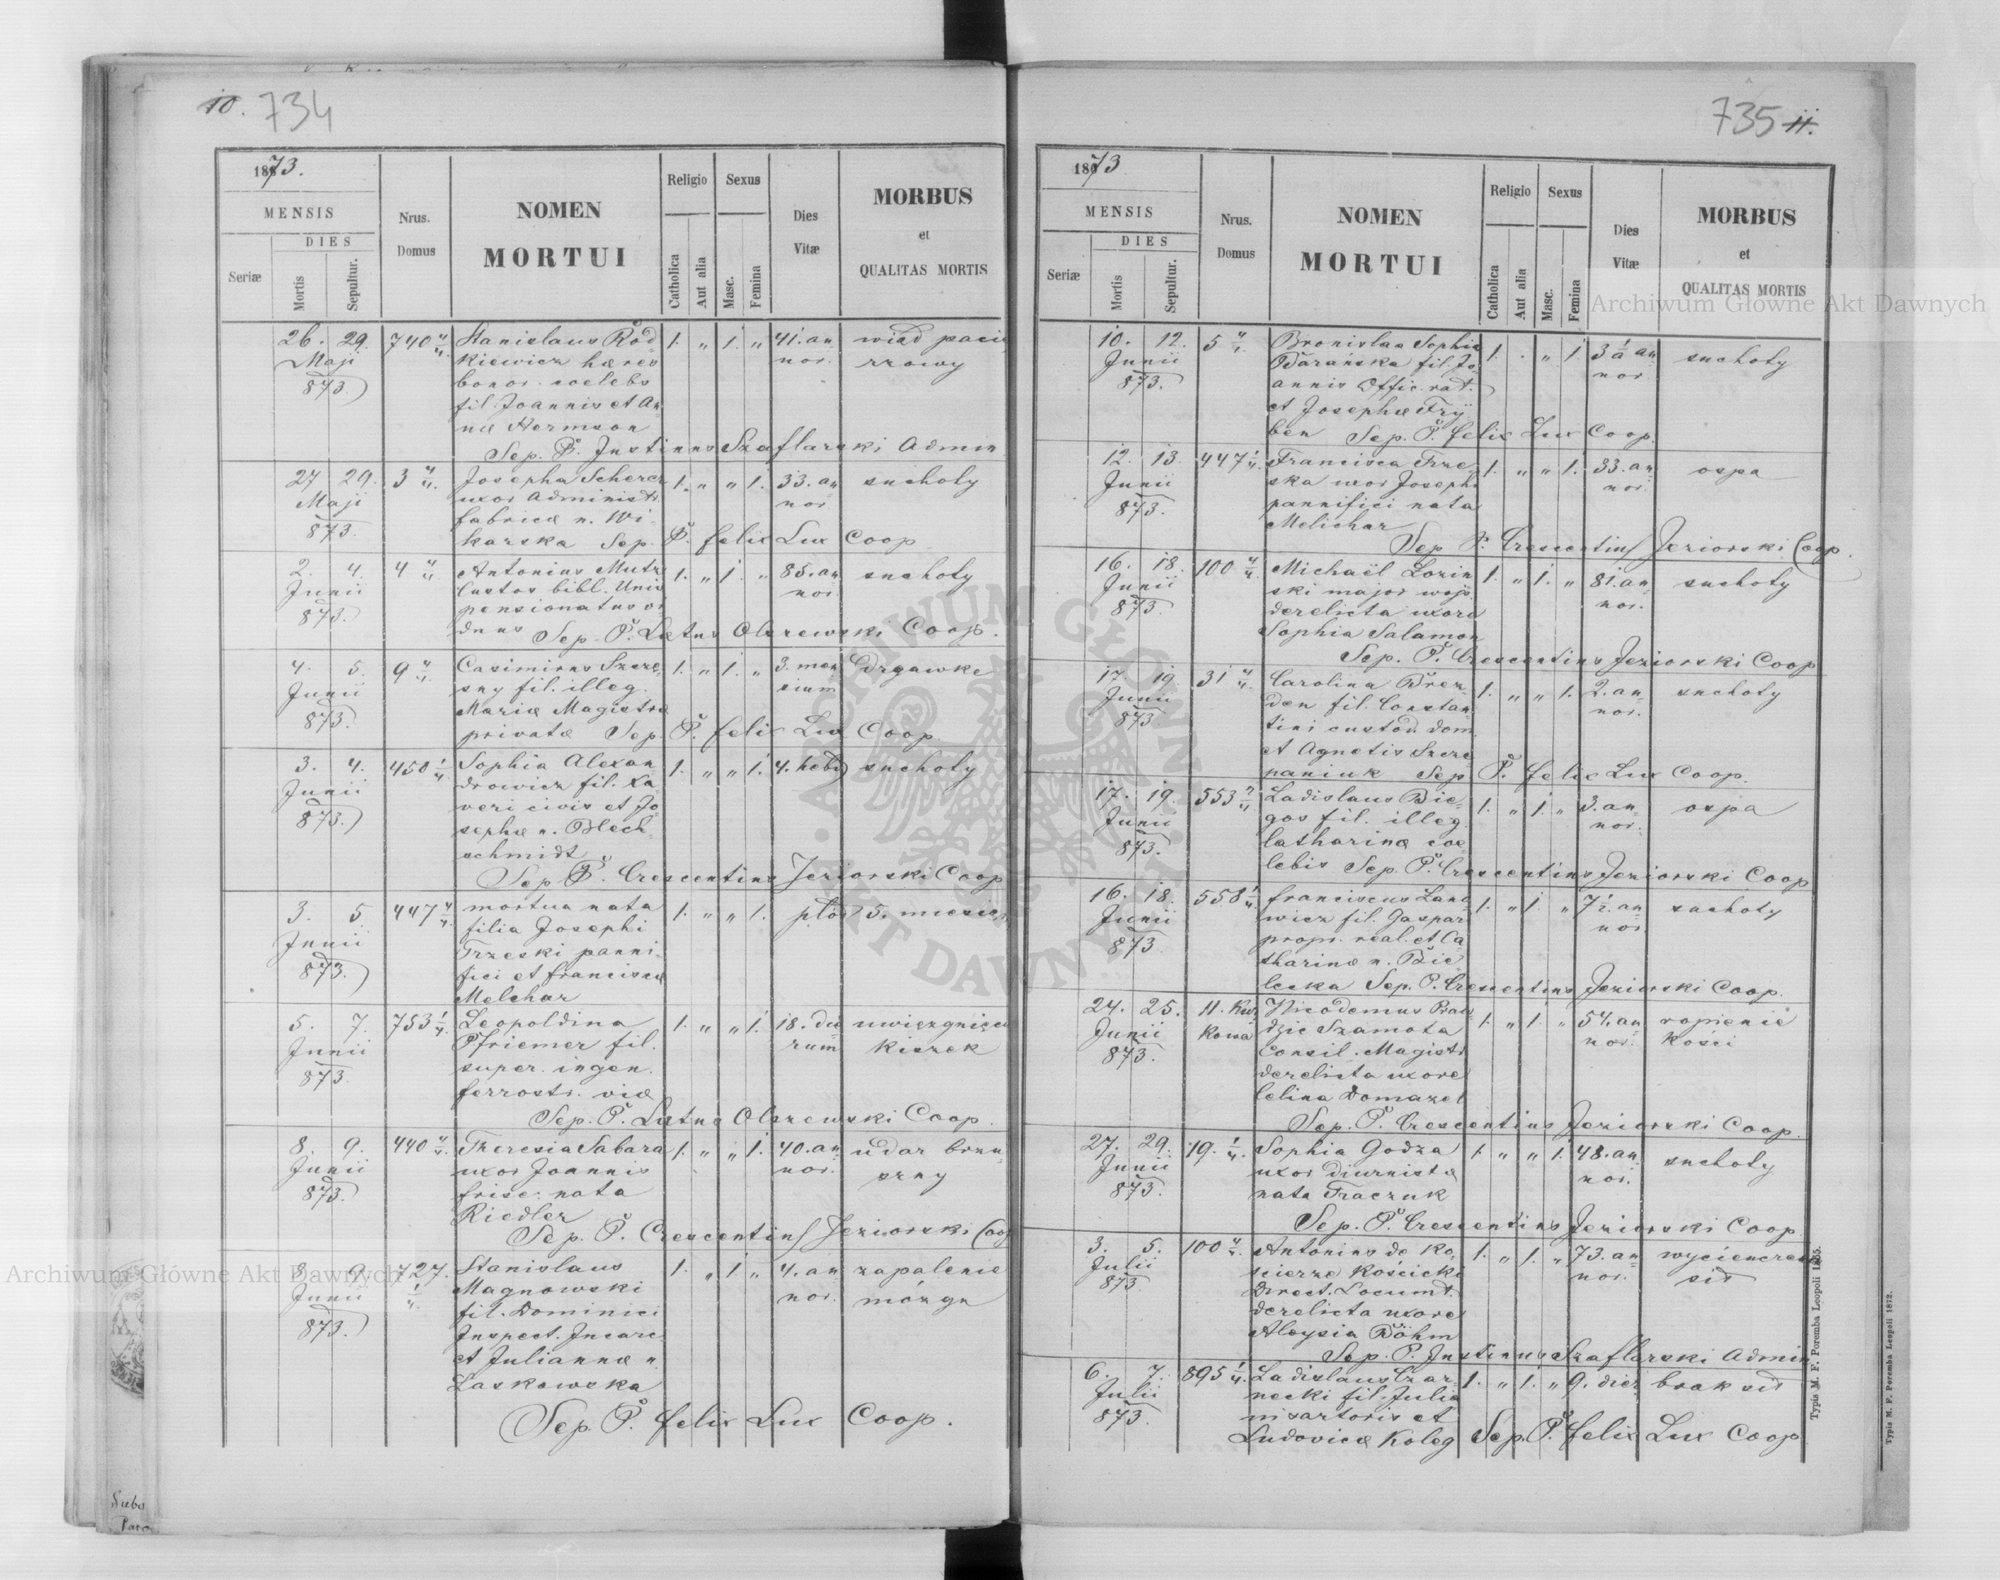 10. 734
1873.
MENSIS
DIES
Seriæ
Mortis
Sepultur.
Nrus.
Domus
NOMEN
MORTUI
Religio
Catholica
Aut alia
Sexus
Masc.
Femina
Dies
Vitæ
MORBUS
et
QUALITAS MORTIS
26. 29. 740 4/4 Stanislaus Rod 1. „ 1. „ 41. an
Maji kiewicz hæres nor.
873. bonor. coelebs
fil. Joannis et An
næ Hermson
Sep. P. Justinus Szaflarski Admin
27 29. 3 4/4 Josepha Scherer 1. „ „ 1. 33. an suchoty
Maji uxor Administr. nor
873. fabricæ n. Wi
karska Sep. P. Felix Lux Coop
2. 4. 4 4/4 Antonius Mutz 1. „ 1. „ 85. an suchoty
Junii Custos bibl. Univ nor.
873. pensionatus vi
duus Sep. P. Lætus Olszewski Coop.
4. 5. 9 4/4 Casimirus Szcze 1. „ 1. „ 3. men Drgawke
Junii sny fil. illeg. sium
873. Mariæ Magistræ
privatæ Sep. P. Felix Lux Coop
3. 4. 450 1/4 Sophia Alexan 1. „ „ 1. 4. hebd suchoty
Junii drowicz fil. Xa
873. veri civis et Jo
sephæ n. Blech
schmidt
Sep. P. Crescentius Jeziorski Coop
3. 5 447 4/4 mortua nata 1. „ „ 1. płod 5. miesięc
Junii filia Josephi
873. Trzeski panni
fici et Franciscæ
Melchar
5. 7. 753 1/4 Leopoldina 1. „ „ 1. 18. die uwięzgnięcie
Junii Pfriemer fil. rum kiszek
873. super. ingen.
ferrostr. viæ
Sep. P. Lætus Olszewski Coop.
8. 9. 440 4/4 Theresia Sabara 1. „ „ 1. 40. an udar brzu
Junii uxor Joannis nor. szny
873. frisc. nata
Riedler
Sep. P. Crescentius Jeziorski Coop
8. 9. 727. Stanislaus 1. „ 1. „ 4. an zapalenie
Junii 1/4 Magnowski nor. mózgu
873. fil. Dominici
Inspect. Incarc.
et Juliannæ n.
Laskowska
Sep. P. Felix Lux Coop.
735 11.
1873
MENSIS
DIES
Seriæ
Mortis
Sepultur.
Nrus.
Domus
NOMEN
MORTUI
Religio
Catholica
Aut alia
Sexus
Masc.
Femina
Dies
Vitæ
MORBUS
et
QUALITAS MORTIS
10. 12. 5 4/4 Bronislaa Sophia 1. . „ 1. 3 an suchoty
Junii Barańska fil. Jo nor
873. annis Offic. rat.
et Josephæ Fry
ben Sep. P. Felix Lux Coop.
12. 13. 447 1/4 Francisca Trze 1. „ „ 1. 33. an ospa
Junii ska uxor Josephi nor.
873. pannifici nata
Melichar
Sep P. Crescentius Jeziorski Coop.
16. 18. 100 4/4 Michaël Lozin 1. „ 1. „ 81. an suchoty
Junii ski major wojs. nor.
873. derelicta uxore
Sophia Salamon
Sep. P. Crescentius Jeziorski Coop
17. 19. 31 4/4 Carolina Bren 1. „ „ 1. 2. an suchoty
Junii den fil. Constan nor.
873. tini custod. dom.
et Agnetis Szcze
paniuk Sep P. Felix Lux Coop.
17. 19. 553 Ladislaus Bie 1. „ 1. „ 3. an ospa
Junii gas fil. illeg. nor.
873. Catharinæ coe
lebis Sep. P. Crescentius Jeziorski Coop
16. 18. 558 1/4 Franciscus Lano 1. „ 1. „ 7 1/2. an suchoty
Junii wicz fil. Gaspar nor
873 propr. real. et Ca
tharinæ n. Bie
lecka Sep. P. Crescentius Jeziorski Coop.
24. 25. Nicodemus Bran 1. „ 1. „ 54. an ropienie
Junii dzic Szamota nor. kości
873. Consil. Magistr.
derelicta uxore
Celina Domazel
Sep. P. Crescentius Jeziorski Coop.
27. 29. 19. 1/4. Sophia Godza 1. „ „ 1. 48. an suchoty
Junii uxor diurnistæ nor.
873. nata Traczuk
Sep. P. Crescentius Jeziorski Coop
3. 5. 100 4/4. Antonius de Ko 1. „ 1. „ 73. an wycieńczenie
Julii ścierza Kościcki nor. sił
873 Direct. Locumt.
derelicta uxore
Aloysia Böhm
Sep. P. Justinus Szaflarski Admin
6. 7. 895 1/4 Ladislaus Czar 1. „ 1. „ 9. dier brak sił
Julii necki fil. Julia
873. ni sartoris et
Ludovicæ Koleg Sep. P. Felix Lux Coop
Typis M. F. Poremba Leopoli 1865.
Typis M. F. Poremba Leopoli 1872.
Archiwum Główne Akt Dawnych
Archiwum Główne Akt Dawnych
ARCHIWUM GŁÓWNE AKT DAWNYCH